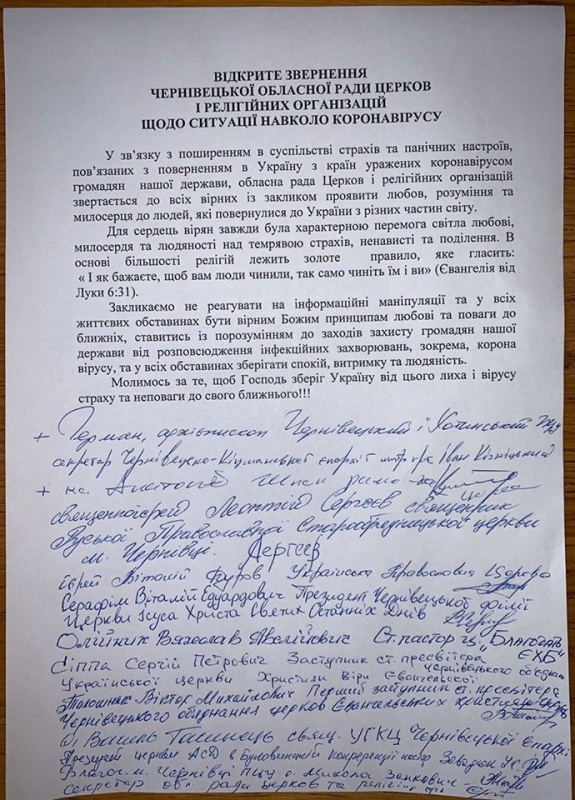 ВІДКРИТЕ ЗВЕРНЕННЯ
ЧЕРНІВЕЦЬКОЇ ОБЛАСНОЇ РАДИ ЦЕРКОВ
І РЕЛІГІЙНИХ ОРГАНІЗАЦІЙ
ЩОДО СИТУАЦІЇ НАВКОЛО КОРОНАВІРУСУ
У зв’язку з поширенням в суспільстві страхів та панічних настроїв,
пов’язаних з поверненням в Україну з країн уражених коронавірусом
громадян нашої держави, обласна рада Церков і релігійних організацій
звертається до всіх вірних із закликом проявити любов, розуміння та
милосерця до людей, які повернулися до України з різних частин світу.
Для сердець вірян завжди була характерною перемога світла любові,
милосердя та людяності над темрявою страхів, ненависті та поділення. В
основі більшості релігій лежить золоте правило, яке гласить:
« І як бажаєте, щоб вам люди чинили, так само чиніть їм і ви» (Євангелія від
Луки 6:31).
Закликаємо не реагувати на інформаційні маніпуляції та у всіх
життєвих обставинах бути вірним Божим принципам любові та поваги до
ближніх, ставитись із порозумінням до заходів захисту громадян нашої
держави від розповсюдження інфекційних захворювань, зокрема, корона
вірусу, та у всіх обставинах зберігати спокій, витримку та людяність.
Молимось за те, щоб Господь зберіг Україну від цього лиха і вірусу
страху та неповаги до свого ближнього!!!
+ Герман, архієпископ Чернівецький і Хотинський
секретар Чернівецько-Кіцманської єпархії Іван
+ Анатолій
священноієрей Леонтій Сергєєв священник
Руської Православної Старообрядницької церкви
м. Чернівці. Сергєєв
Ієрей Віталій Українська Православна Церква
Серафім Віталій Едуардович Президент Чернівецької філії
Церкви Ісуса Христа Святих Останніх Днів
Олійник Вячеслав Ст. пастор ц. "Благодать"
ЄХБ
Сіппа Сергій Петрович Заступник ст. пресвітера
Чернівецького
Української церкви Християн Віри Євангельської
Віктор Михайлович Перший заступник ст. пресвітера
Чернівецького об'єднання церков Євангельських християн
о. Василь свящ. УГКЦ Чернівецької Єпархії
Президент церкви АСД в Буковинській конференції
м. Чернівці ПЦУ о. Микола
Секретар ради церков та